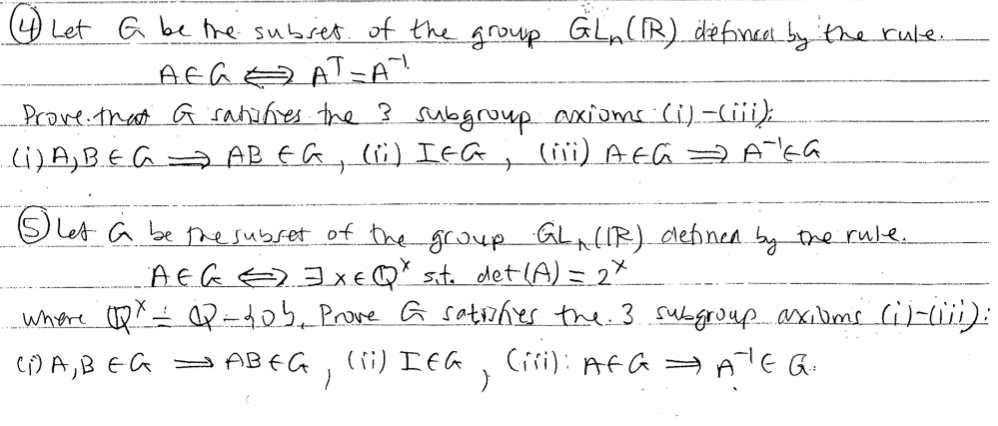 ④ Let G be the subset of the group GLₙ(ℝ) defined by the rule.
A∈G ⟺ Aᵀ=A⁻¹
Prove that G satisfies the 3 subgroup axioms (i)-(iii):
(i) A,B∈G ⟹ AB∈G, (ii) I∈G, (iii) A∈G ⟹ A⁻¹∈G
⑤ Let G be the subset of the group GLₙ(ℝ) defined by the rule.
A∈G ⟺ ∃x∈ℚˣ s.t. det(A) = 2ˣ
where ℚˣ = ℚ-{0}. Prove G satisfies the 3 subgroup axioms (i)-(iii):
(i) A,B∈G ⟹ AB∈G, (ii) I∈G, (iii): A∈G ⟹ A⁻¹∈G.